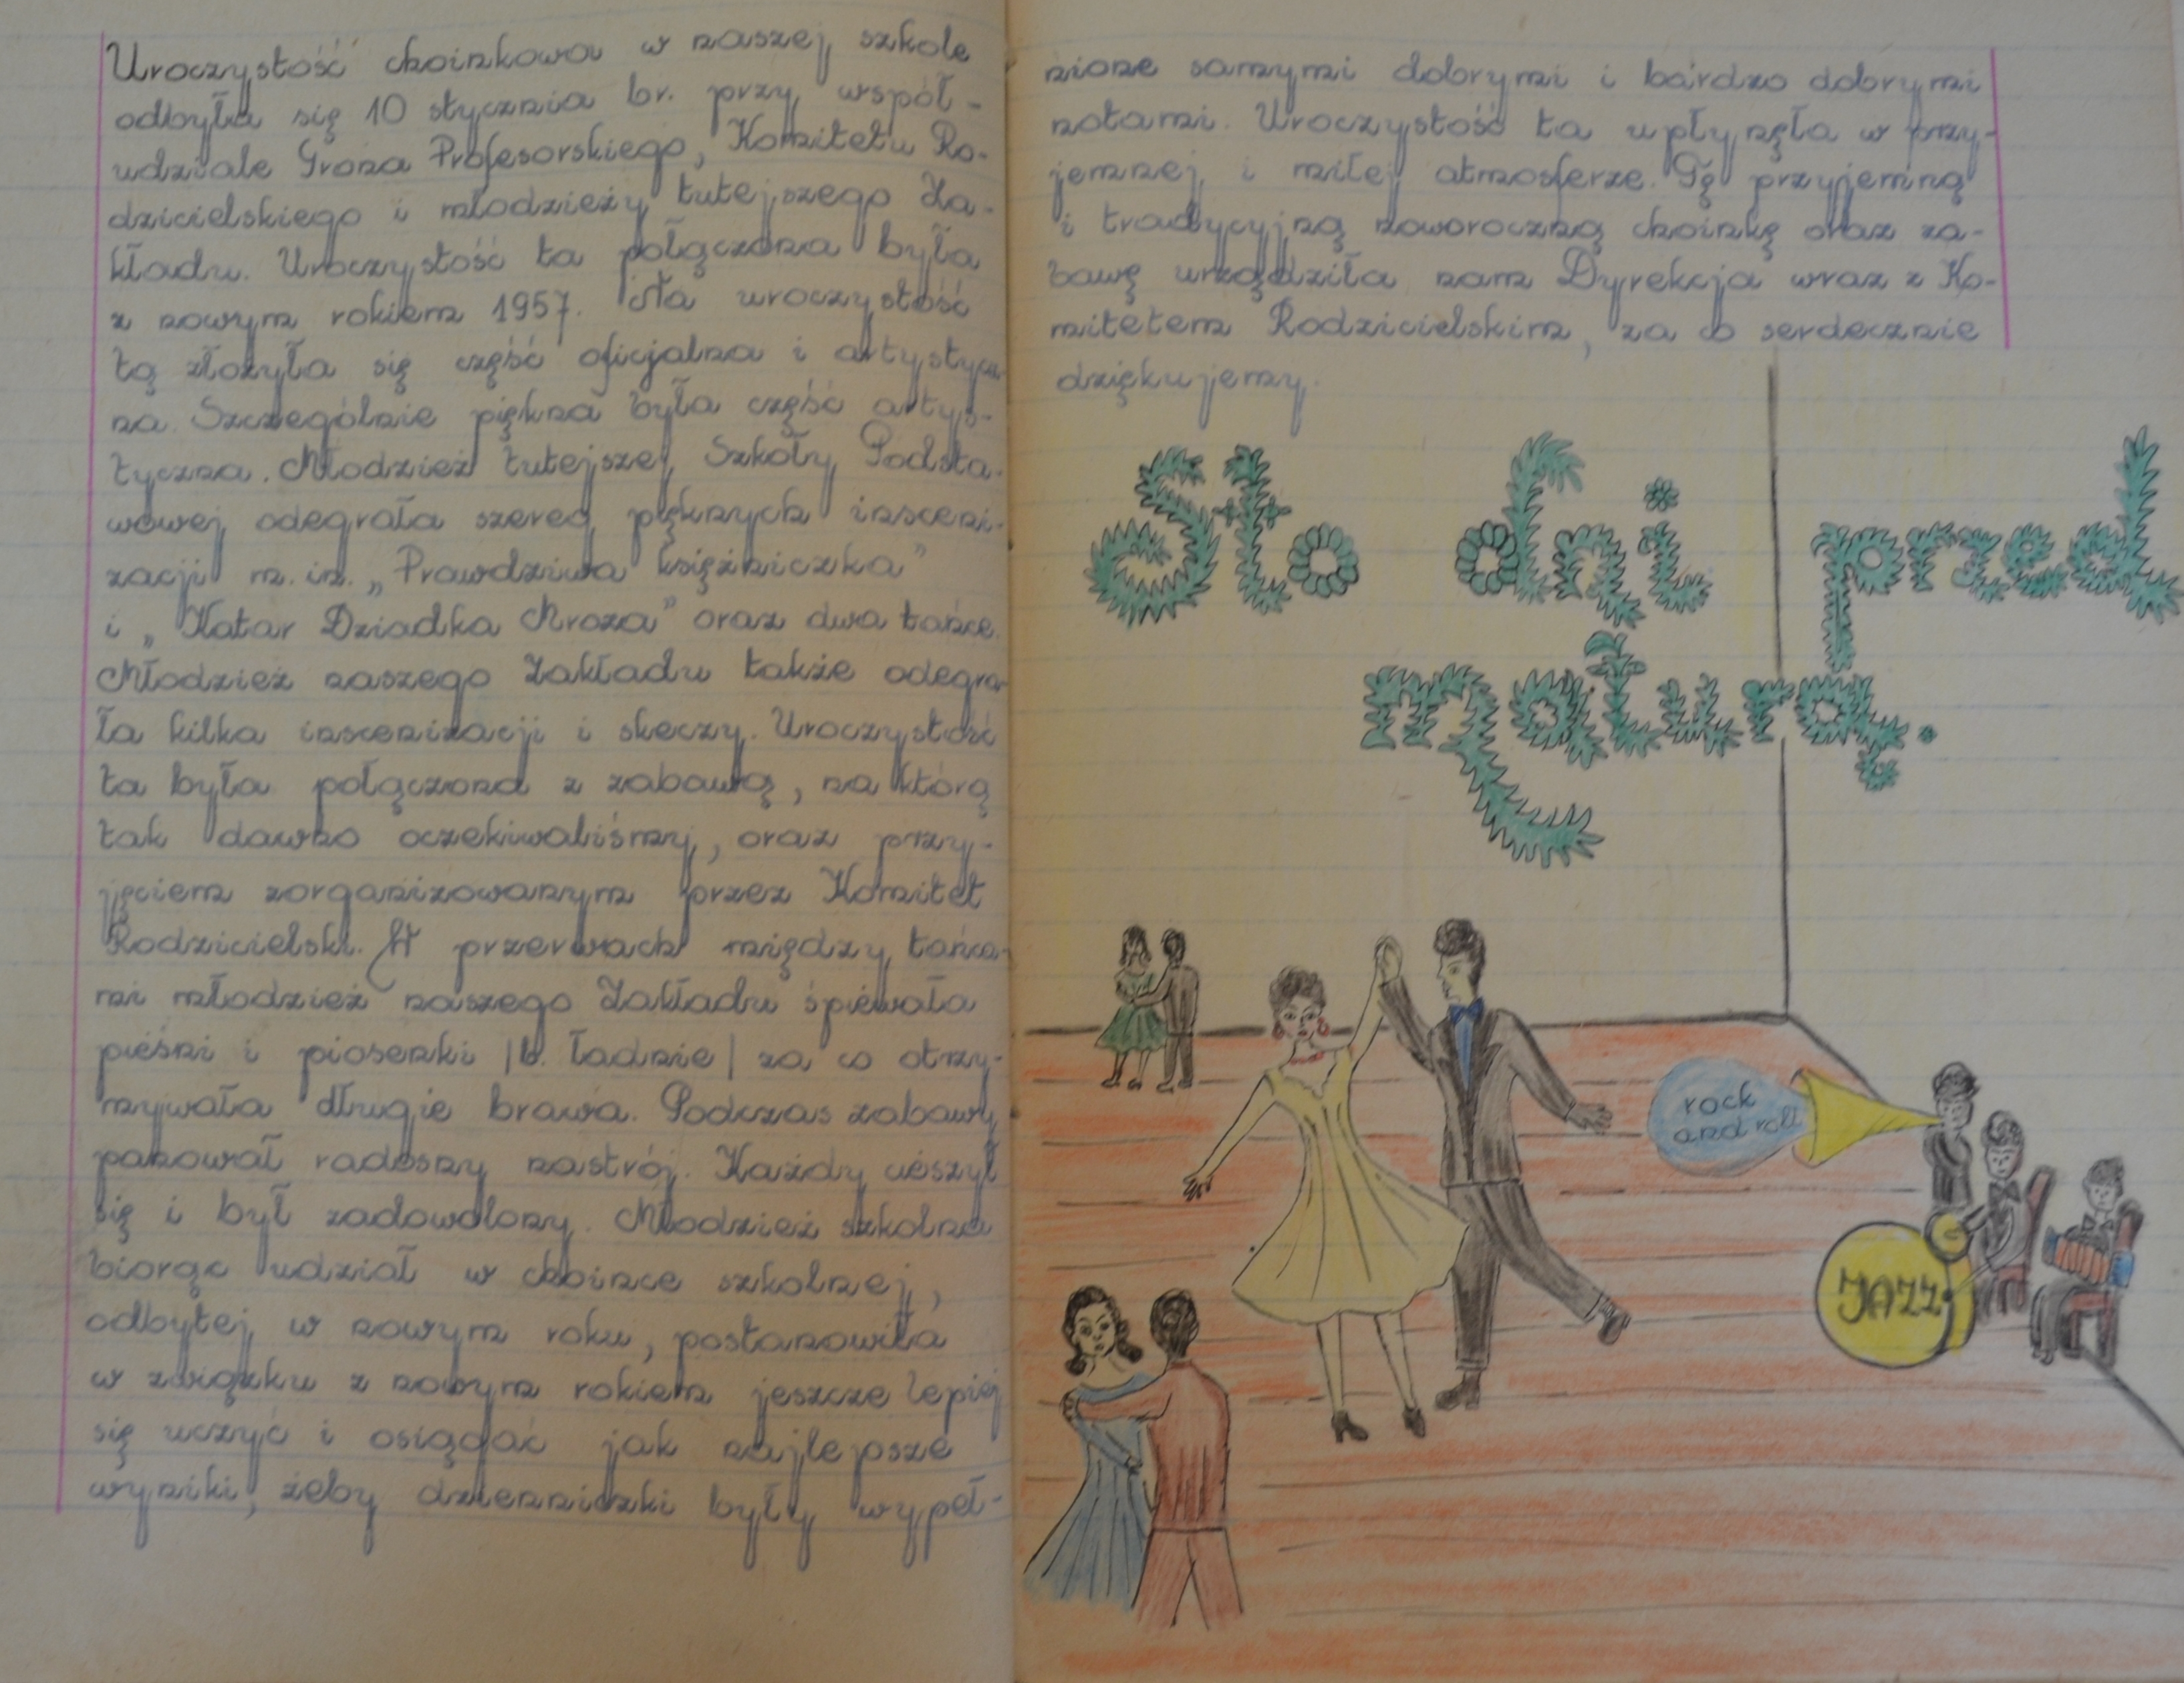 Uroczystość choinkowa w naszej szkole
odbyła się 10 stycznia br. przy współ-
udziale Grona Profesorskiego, Komitetu Ro-
dzicielskiego i młodzieży tutejszego Za-
kładu. Uroczystość ta połączona była
z nowym rokiem 1957. Na uroczystość
tą złożyła się część oficjalna i artystycz
na. Szczególnie piękna była część artys-
tyczna. Młodzież tutejszej Szkoły Podsta-
wowej odegrała szereg pięknych insceni-
zacji m. in. „Prawdziwa księżniczka”
i „Katar Dziadka Mroza” oraz dwa tańce.
Młodzież naszego Zakładu także odegra-
ła kilka inscenizacji i skeczy. Uroczystość
ta była połączona z zabawą, na którą
tak dawno oczekiwaliśmy, oraz przy-
jęciem zorganizowanym przez Komitet
Rodzicielski. W przerwach między tańca-
mi młodzież naszego Zakładu śpiewała
pieśni i piosenki /b. ładnie/ za co otrzy-
mywała długie brawa. Podczas zabawy
panował radosny nastrój. Każdy cieszył
się i był zadowolony. Młodzież szkolna
biorąc udział w choince szkolnej,
odbytej w nowym roku, postanowiła
w związku z nowym rokiem jeszcze lepiej
się uczyć i osiągać jak najlepsze
wyniki, żeby dzienniczki były wypeł-
nione samymi dobrymi i bardzo dobrymi
notami. Uroczystość ta upłynęła w przy-
jemnej i miłej atmosferze. Tę przyjemną
i tradycyjną noworoczną choinkę oraz za-
bawę urządziła nam Dyrekcja wraz z Ko-
mitetem Rodzicielskim, za co serdecznie
dziękujemy.
Sto dni przed
maturą.
rock
and roll
JAZZ